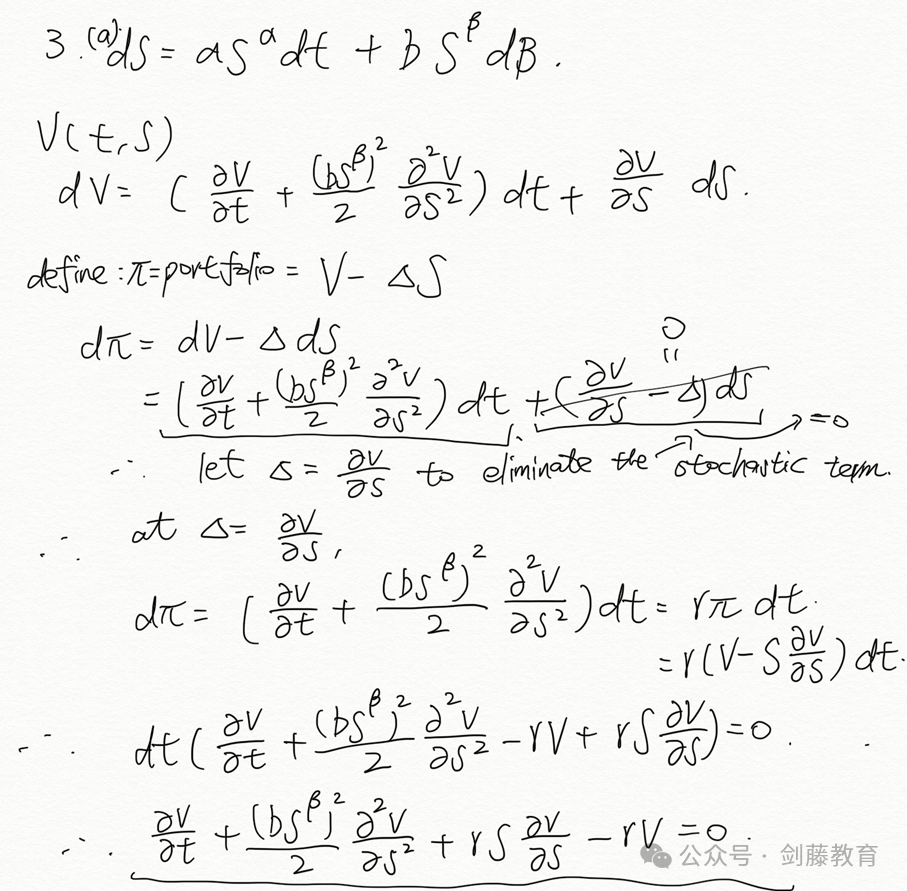 3. (a). dS = aS^α dt + b S^β dB.
V(t, S)
dV = (∂V/∂t + (bS^β)^2/2 ∂²V/∂S²) dt + ∂V/∂S dS.
define: π = portfolio = V - ΔS
dπ = dV - Δ dS
0
"
= (∂V/∂t + (bS^β)^2/2 ∂²V/∂S²) dt + (∂V/∂S - Δ) dS
=0
∴ let Δ = ∂V/∂S to eliminate the stochastic term.
∴ at Δ = ∂V/∂S,
dπ = (∂V/∂t + (bS^β)^2/2 ∂²V/∂S²) dt = rπ dt.
= r(V - S ∂V/∂S) dt.
∴ dt (∂V/∂t + (bS^β)^2/2 ∂²V/∂S² - rV + rS ∂V/∂S) = 0.
∴ ∂V/∂t + (bS^β)^2/2 ∂²V/∂S² + rS ∂V/∂S - rV = 0.
公众号 · 剑藤教育